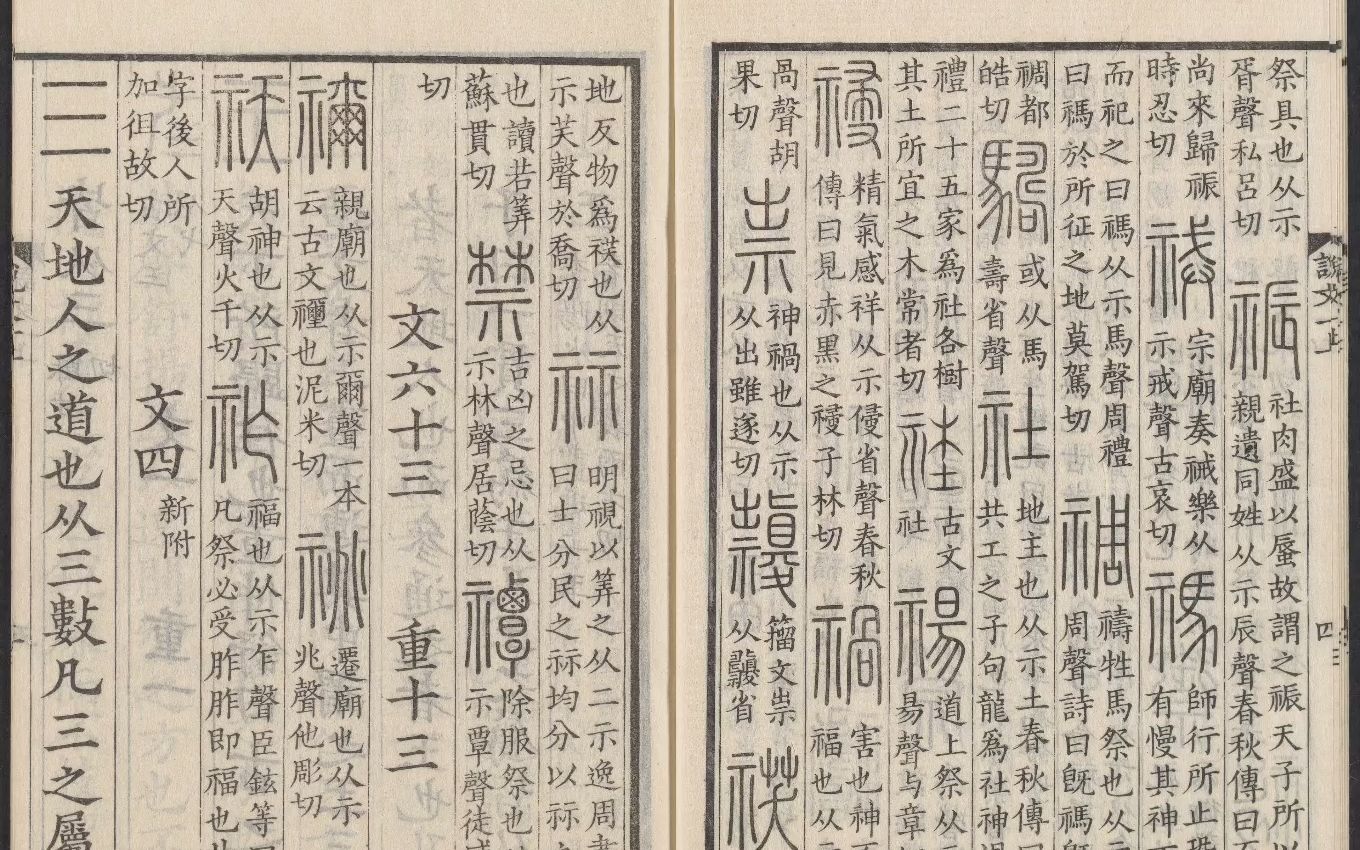 祭具也从示
胥聲私呂切
祳
社肉盛以蜃故謂之祳天子所
親遺同姓从示辰聲春秋傳曰
尚來歸祳
時忍切
祴
宗廟奏祴樂从
示戒聲古哀切
禡
師行所止恐
有慢其神
而祀之曰禡从示馬聲周禮
曰禡於所征之地莫駕切
禂
禱牲馬祭也从
周聲詩曰旣禡
禂都
皓切
或从馬
壽省聲
社
地主也从示土春秋傳
共工之子句龍爲社神
禮二十五家爲社各樹
其土所宜之木常者切
古文
社
禓
道上祭从
昜聲与章
祲
精氣感祥从示𠬶省聲春秋
傳曰見赤黑之祲子林切
禍
害也神
福也从
咼聲胡
果切
祟
神禍也从示
从出雖遂切
籒文祟
省
祅
說文一上
四
地反物爲祅也从
示芺聲於喬切
祘
明視以筭之从二示逸周書
曰士分民之祘均分以祘
也讀若筭
蘇貫切
禁
吉凶之忌也从
示林聲居蔭切
禫
除服祭也
示覃聲徒
切
文六十三
重十三
禰
親廟也从示爾聲一本
云古文禰也泥米切
祧
遷廟也从示
兆聲他彫切
祆
胡神也从示
天聲火千切
祚
福也从示乍聲臣鉉等
凡祭必受胙胙即福也
字後人所
加徂故切
文四
新附
三
天地人之道也从三數凡三之屬